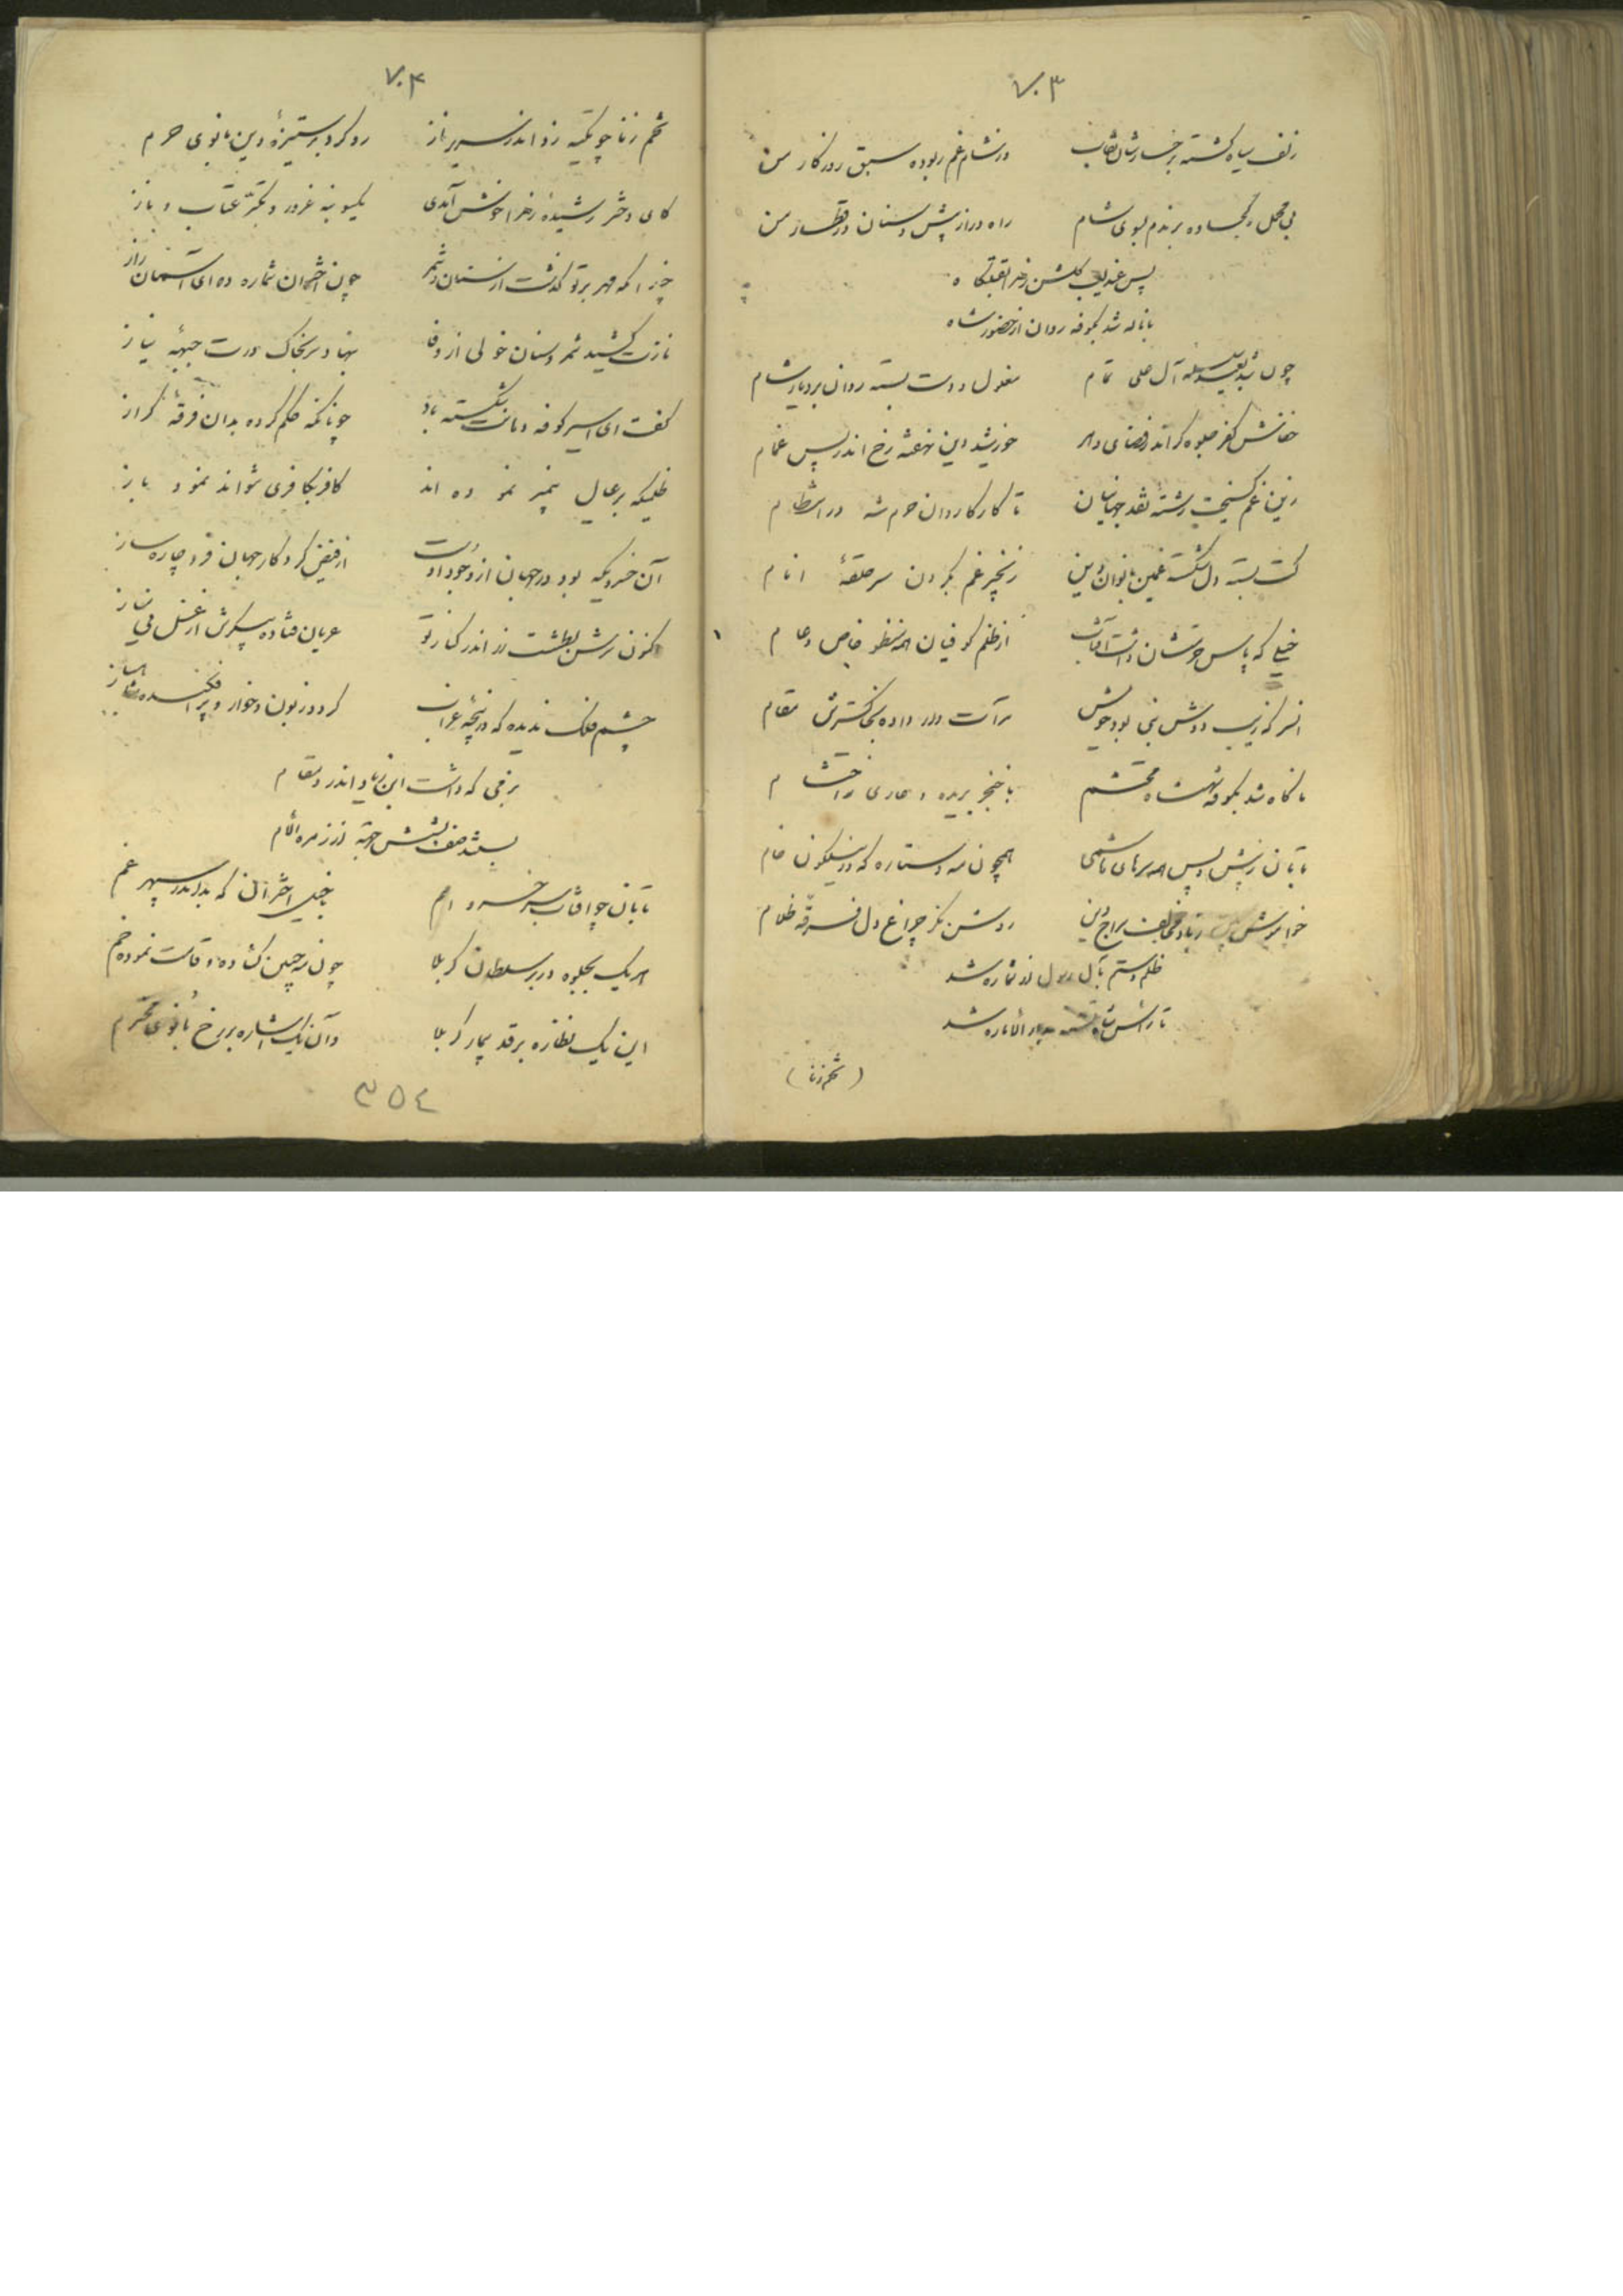 ۷۰۳
زلف سیاه گشته برخسارشان نقاب در شام غم ربوده سبق روزکار من
بی محمل و کجاوه برندم بسوی شام راه دراز پیش و سنان در قطار من
پس عندلیب گلشن زهرا بقتلگاه
با ناله شد بکوفه روان از حضور شاه
چون شد بقید سلسله آل علی تمام مغلول و دست بسته روان بر دیار شام
خفاش کفر جلوه گر اندر فضای دهر خورشید دین نهفته رخ اندر پس غمام
زین غم گسیخت رشته نقد جهانیان تا کار کاروان حرم شد در انتظام
کت بسته دل شکسته غمین بانوان دین زنجیر غم بگردن سر حلقهٔ انام
خیلی که پاس حرمتشان داشت آفتاب از ظلم کوفیان همه منظور خاص و عام
انسر که زیب دوش نبی بود خولیش مقام
ناگاه شد بکوفه شهنشاه محتشم با خنجر بریده و عاری ز احتشام
تابان ز پیش و پس همه سرهای هاشمی همچون مه و ستاره که در نیلگون خیام
خواموش سراج دین روشن نگر چراغ دل فرقه ظلام
ظلم و ستم بآل رسول از شماره شد
تا رأس شاه تشنه بدار الاماره شد
(تخم زنا)
۷۰۴
تخم زنا چو تکیه زد اندر سریر ناز رو کرد بر ستیزهٔ دین بانوی حرم
کای دختر رشیدهٔ زهرا خوش آمدی یکسو بنه غرور و تکبر عتاب و ناز
چرا که مهر بر تو گذشت از سنان و شمر چون اختران شماره ده ای آسمان راز
نازت کشید شمر و سنان خولی از وفا بنهاد سر بخاک درت جبههٔ نیاز
گفت ای اسیر کوفه دهانت شکسته باد چونانکه حکم کرده بدان فرقهٔ گراز
ظلمیکه بر عیال پیمبر نموده اند کافر بکافری نتواند نمود باز
آن خسرویکه بود در جهان از وجود اوست از فیض کردگار جهان فرد چاره ساز
اکنون سرش بطشت زر اندر کنار تو عریان فتاده پیکرش از غسل بی نماز
چشم فلک ندیده که در پنجهٔ غراب گردد زبون و خوار و پر افکنده شاهباز
بزمی که داشت ابن زیاد اندر و مقام
بسته صف بشش جهة از زمره الأم
تابان چو آفتاب سر خسرو امم با خیل اختران که بد اندر سپهر غم
هر یک بجلوه در بر سلطان کربلا چون مه جبین گشاده و قامت نموده خم
این یک نظاره بر قد بیمار کربلا وآن یک اشاره بر رخ بانوی محترم
۳۵٤